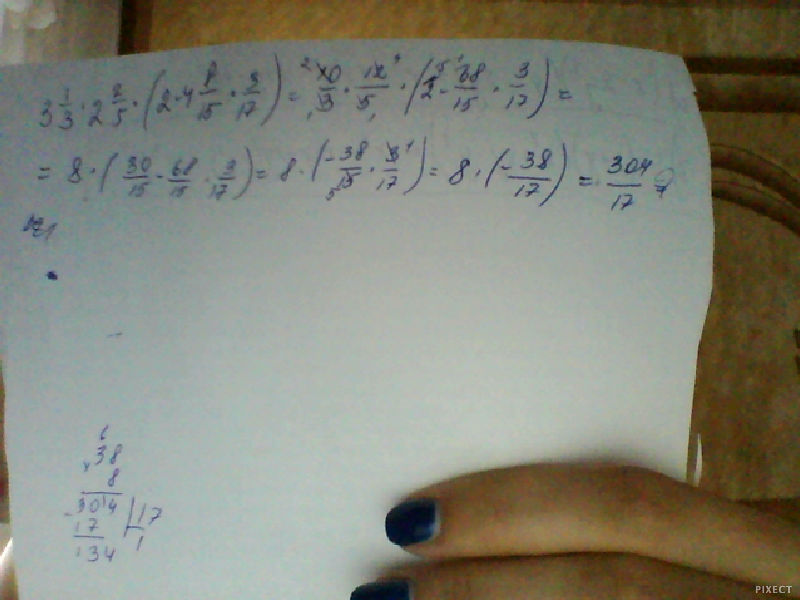 3 1/3 · 2 2/5 · (2 - 4 8/15 · 3/17) = 10/3 · 12/5 · (2 - 68/15 · 3/17) =
= 8 · (30/15 - 68/15 · 3/17) = 8 · (-38/15 · 3/17) = 8 · (-38/17) = 304/17 ?
№1
38
8
304 | 17
17 1
134
PIXECT